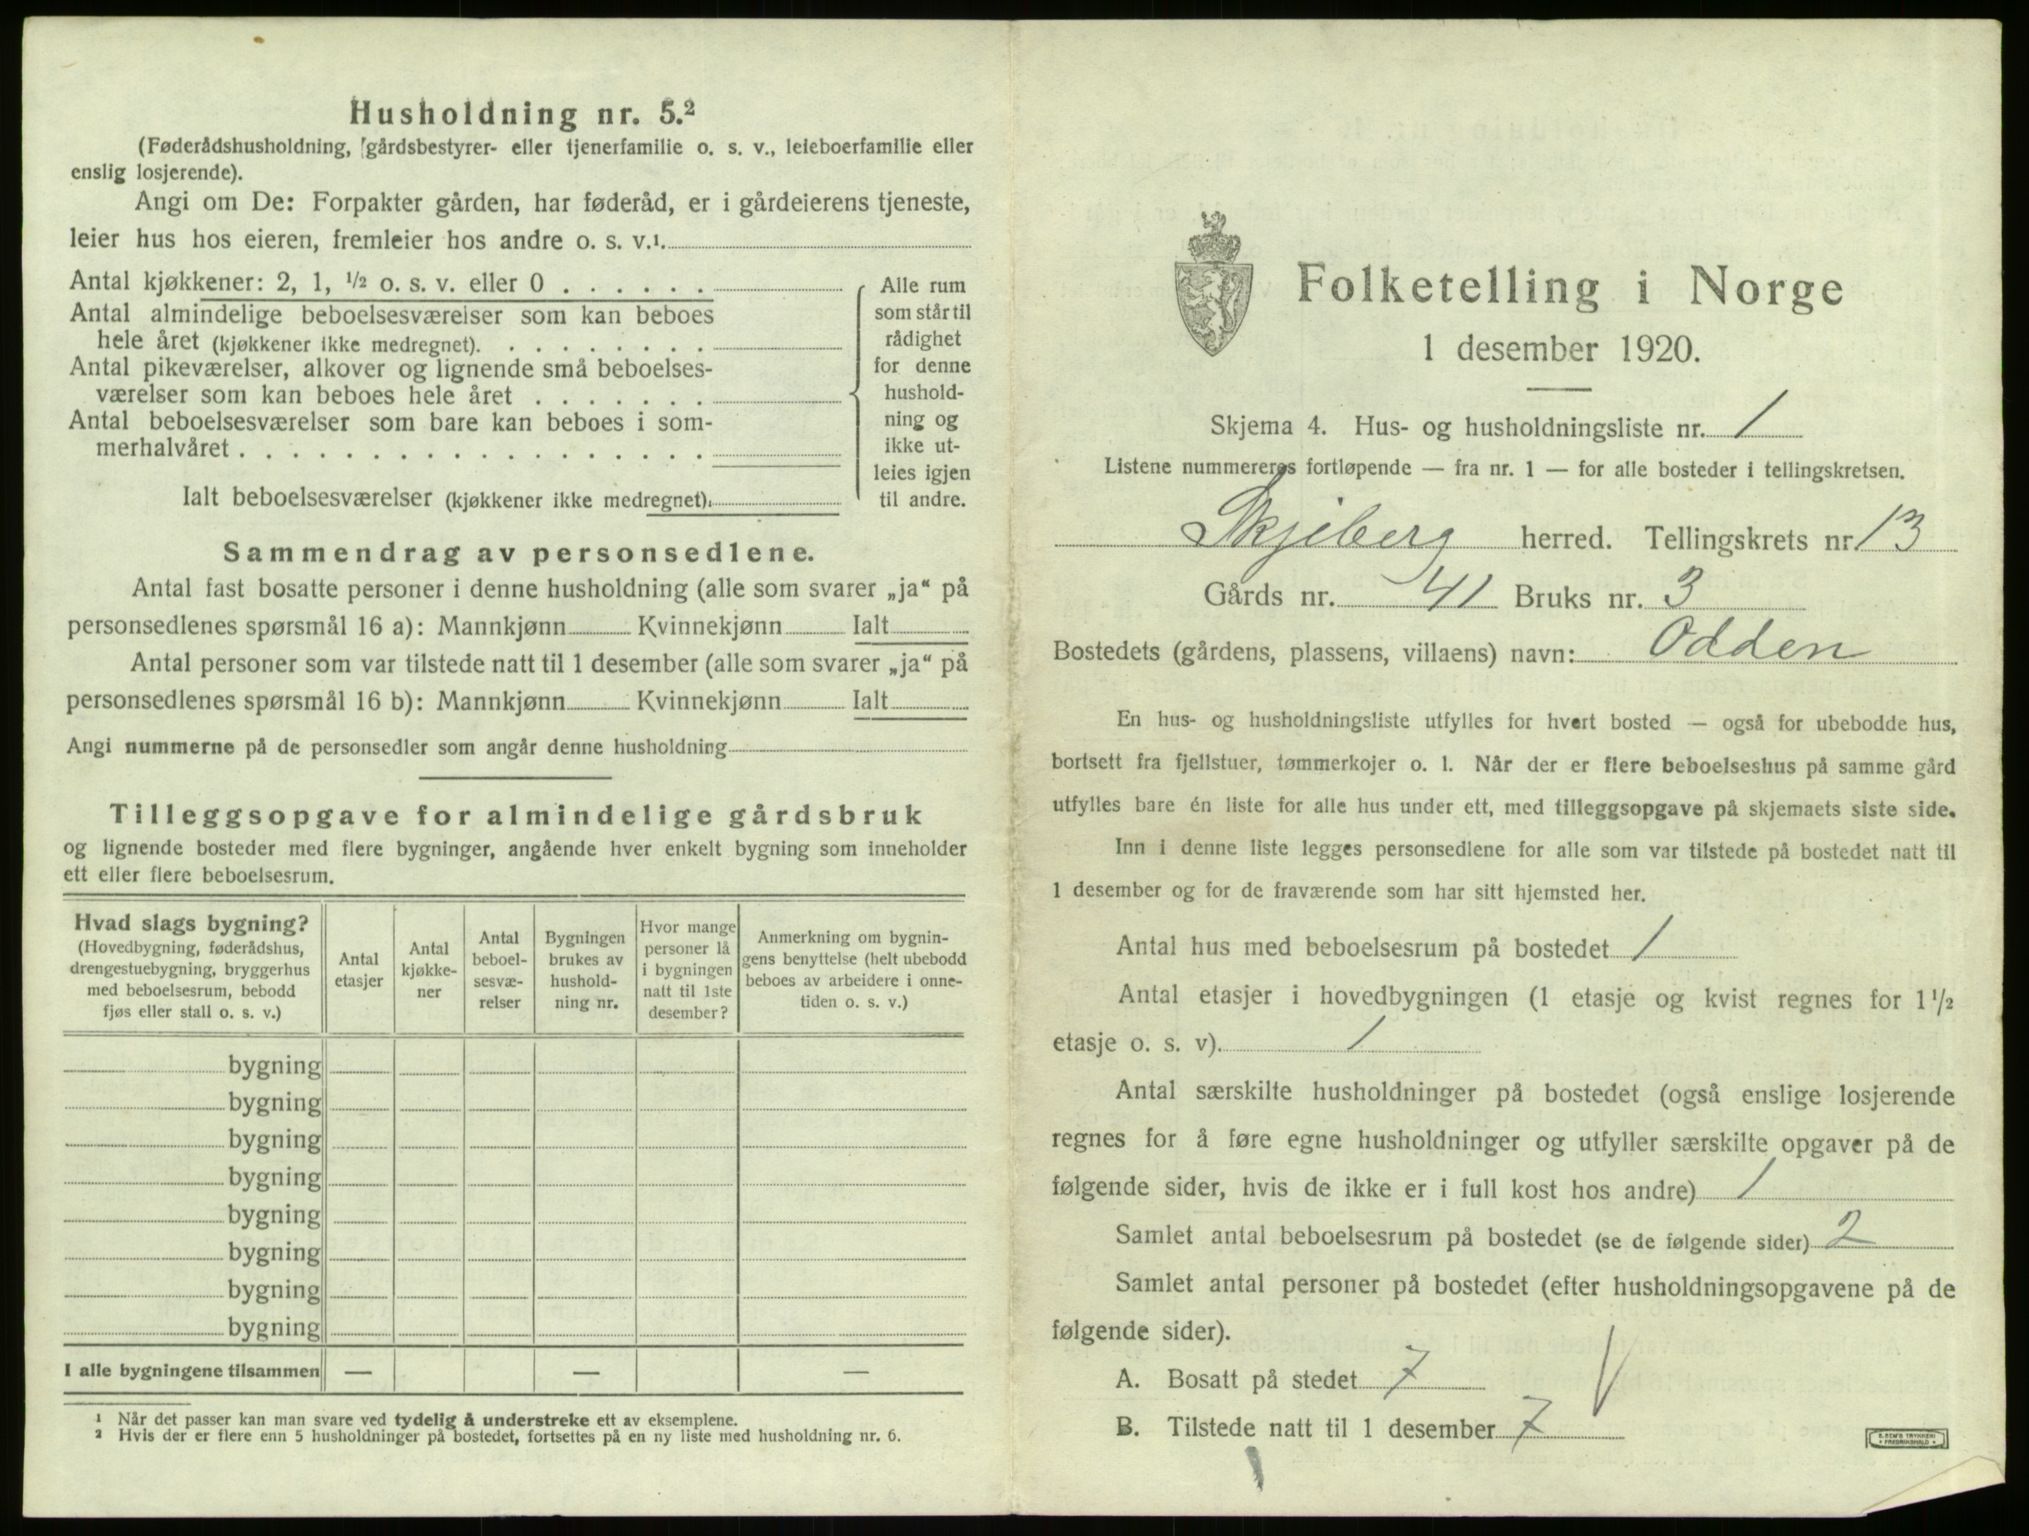 Husholdning nr. 5.²
(Føderådshusholdning, gårdsbestyrer- eller tjenerfamilie o. s. v., leieboerfamilie eller
enslig losjerende).
Angi om De: Forpakter gården, har føderåd, er i gårdeierens tjeneste,
leier hus hos eieren, fremleier hos andre o. s. v.¹
Antal kjøkkener: 2, 1, ½ o. s. v. eller 0 . . . . . .
Antal almindelige beboelsesværelser som kan beboes
hele året (kjøkkener ikke medregnet). . . . . . . . .
Antal pikeværelser, alkover og lignende små beboelses-
værelser som kan beboes hele året . . . . . . .
Antal beboelsesværelser som bare kan beboes i som-
merhalvåret . . . . . . . . . . . . . . . . . .
Ialt beboelsesværelser (kjøkkener ikke medregnet).
Alle rum
som står til
rådighet
for denne
hushold-
ning og
ikke ut-
leies igjen
til andre.
Sammendrag av personsedlene.
Antal fast bosatte personer i denne husholdning (alle som svarer „ja“ på
personsedlenes spørsmål 16 a): Mannkjønn Kvinnekjønn Ialt
Antal personer som var tilstede natt til 1 desember (alle som svarer „ja“ på
personsedlenes spørsmål 16 b): Mannkjønn Kvinnekjønn Ialt
Angi nummerne på de personsedler som angår denne husholdning
Tilleggsopgave for almindelige gårdsbruk
og lignende bosteder med flere bygninger, angående hver enkelt bygning som inneholder
ett eller flere beboelsesrum.
Hvad slags bygning?
(Hovedbygning, føderådshus,
drengestuebygning, bryggerhus
med beboelsesrum, bebodd
fjøs eller stall o. s. v.)
Antal
etasjer
Antal
kjøkke-
ner
Antal
beboel-
sesvæ-
relser
Bygningen
brukes av
hushold-
ning nr.
Hvor mange
personer lå
i bygningen
natt til 1ste
desember?
Anmerkning om bygnin-
gens benyttelse (helt ubebodd
beboes av arbeidere i onne-
tiden o. s. v.)
bygning
bygning
bygning
bygning
bygning
bygning
bygning
bygning
I alle bygningene tilsammen — — —
¹ Når det passer kan man svare ved tydelig å understreke ett av eksemplene.
² Hvis der er flere enn 5 husholdninger på bostedet, fortsettes på en ny liste med husholdning nr. 6.
Folketelling i Norge
1 desember 1920.
Skjema 4. Hus- og husholdningsliste nr. 1
Listene nummereres fortløpende — fra nr. 1 — for alle bosteder i tellingskretsen.
Skjeberg herred. Tellingskrets nr 13
Gårds nr. 41 Bruks nr. 3
Bostedets (gårdens, plassens, villaens) navn: Odden
En hus- og husholdningsliste utfylles for hvert bosted — også for ubebodde hus,
bortsett fra fjellstuer, tømmerkojer o. l. Når der er flere beboelseshus på samme gård
utfylles bare én liste for alle hus under ett, med tilleggsopgave på skjemaets siste side.
Inn i denne liste legges personsedlene for alle som var tilstede på bostedet natt til
1 desember og for de fraværende som har sitt hjemsted her.
Antal hus med beboelsesrum på bostedet 1
Antal etasjer i hovedbygningen (1 etasje og kvist regnes for 1 ½
etasje o. s. v). 1
Antal særskilte husholdninger på bostedet (også enslige losjerende
regnes for å føre egne husholdninger og utfyller særskilte opgaver på de
følgende sider, hvis de ikke er i full kost hos andre) 1
Samlet antal beboelsesrum på bostedet (se de følgende sider) 2
Samlet antal personer på bostedet (efter husholdningsopgavene på de
følgende sider).
A. Bosatt på stedet 7
B. Tilstede natt til 1 desember 7